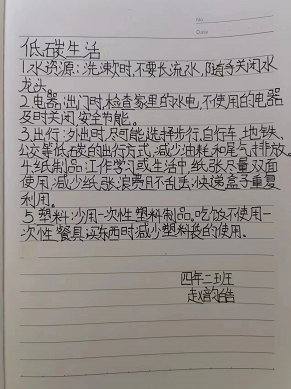 No
Date
低碳生活
1.水资源:洗漱时,不要长流水,随手关闭水
龙头。
2.电器:出门时,检查家里的水电,不使用的电器
及时关闭,安全节能。
3.出行:外出时,尽可能选择步行、自行车、地铁、
公交等低碳的出行方式,减少油耗和尾气排放。
4.纸制品:工作学习或生活中,纸张尽量双面
使用,减少纸张浪费,且不乱丢;快递盒子重复
利用。
5.塑料:少用一次性塑料制品。吃饭不使用一
次性餐具,买东西时减少塑料袋的使用。
四年二班
赵韵皓